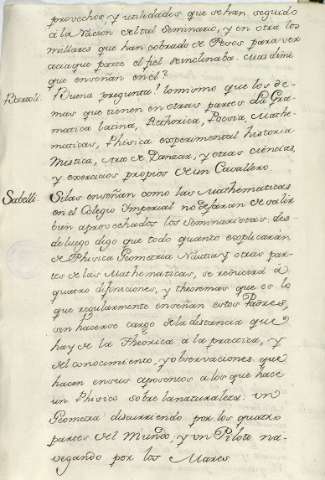 provechos y utilidades que se han seguido
à la Nacion del tal Seminario, y en otra los
millares que han cobrado de Pesos para ver
acia que parte el fiel se inclinaba.
que enseñan en el?
Bartoli. Buena pregunta! lo mismo que los de-
mas que tienen en otras partes la Gra-
matica latina, Rethorica, Poesia, Mathe-
maticas, Phisica experimental historia
Mistica, Arte de Danzar, y otras ciencias,
y exercicios propios de un Cavallero.
Sabelli. Si las enseñan como las Mathematicas
en el Colegio Imperial no dejaràn de salir
bien aprovechados los Seminaristas; des-
de luego digo que todo quanto explicaràn
de Phisica Geometria Nautica y otras par-
tes de las Mathematicas, se reducirà à
quatro difiniciones, y theoremas que es lo
que regularmente enseñan estos Padres,
sin hacerse cargo de la distancia que
hay de la Theorica à la practica, y
del conocimiento, y observaciones que
hacen en sus aposentos a los que hace
un Phisico sobre la naturaleza: un
Geometra discurriendo por los quatro
partes del Mundo, y un Piloto na-
vegando por los Mares.